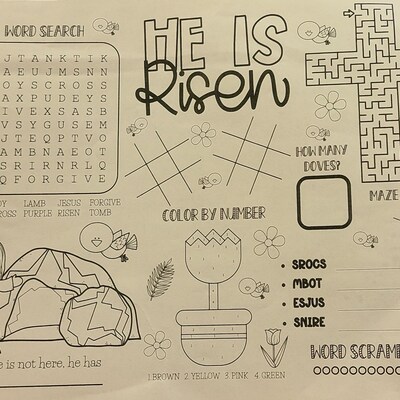 WORD SEARCH
J T A N K T I K
A E U J M S N N
O Y S C R O S S
A X P U D E Y S
I V E X S A S B
V S Y G U S E M
J T E Q P T V O
A M B N A E O T
S R I R N R L Q
Q F O R G I V E
LAMB JESUS FORGIVE
PURPLE RISEN TOMB
HE IS
Risen
HOW MANY
DOVES?
MAZE
COLOR BY NUMBER
1 BROWN 2 YELLOW 3 PINK 4 GREEN
• SROCS
• MBOT
• ESJUS
• SNIRE
WORD SCRAM
is not here, he has